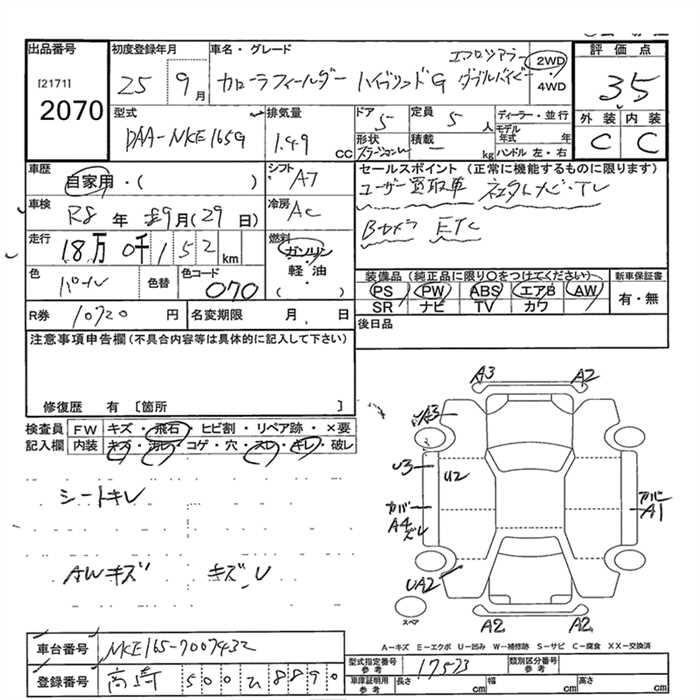 出品番号
[2171]
2070
初度登録年月
25 9月
車名・グレード
カローラフィールダー ハイブリッドG エアロツアラー ダブルバイビー
2WD
・
4WD
評価点
3.5
外装 内装
C C
型式
DAA-NKE165G
排気量
1.49 cc
ドア 5
定員 5 人
形状 ステーションW
積載 - kg
ディーラー・並行
モデル年式 年
ハンドル 左・右
車歴
自家用・( )
シフト AT
セールスポイント (正常に機能するものに限ります)
ユーザー買取車 純正ナビ・TV
Bカメラ ETC
車検
R8 年 9月(29日)
冷房 AC
走行
18万0千152 km
燃料
ガソリン
軽・油
( ・ )
色
パール
色替
色コード
070
装備品(純正品に限り○をつけてください)
新車保証書
PS PW ABS エアB AW
有・無
SR ナビ TV カワ
R券 10720 円
名変期限 月 日
後日品
注意事項申告欄(不具合内容等は具体的に記入して下さい)
修復歴 有 [箇所 ]
検査員記入欄
FW キズ・飛石・ヒビ割・リペア跡・×要
内装 キズ・汚レ・コゲ・穴・スレ・キレ・破レ
シートキレ
AWキズ キズ、U
A3 A2
A3
U3 U2
カバー
A4
ズレ
カバー
A1
UA2
スペア
A2 A2
A-キズ E-エクボ U-凹み W-補修跡 S-サビ C-腐食 XX-交換済
車台番号 NKE165-7007432
登録番号 高崎 500 ひ 8890
型式指定番号 参考 17573
類別区分番号 参考
車庫証明用 参考 長さ cm 幅 cm 高さ cm